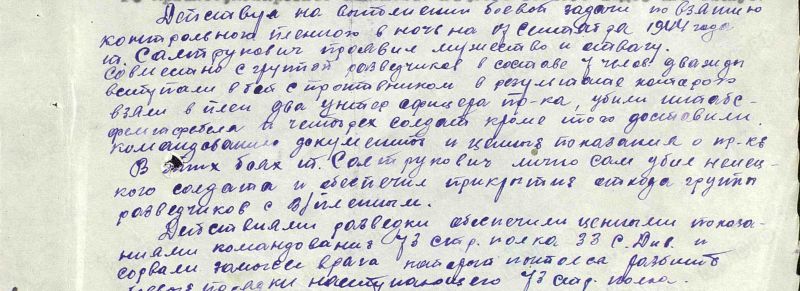 Действуя на выполнении боевой задачи по взятию
контрольного пленного в ночь на сентября 1944 года
т. Салтрукович проявил мужество и отвагу.
Совместно с группой разведчиков в составе 7 человек дважды
вступали в бой с противником в результате которого
взяли в плен два унтер офицера пр-ка, убили штабс-
фельдфебеля и четырех солдат кроме того доставили
командованию документы и ценные показания о пр-ке
В этих боях т. Салтрукович лично сам убил немец-
кого солдата и обеспечил прикрытие отхода группы
разведчиков с в/пленным.
Действиями разведки обеспечили ценными показа-
ниями командование 73 стр. полка 33 с. Див. и
сорвали замысел врага который пытался разбить
боевые порядки наступающего 73 стр. полка.